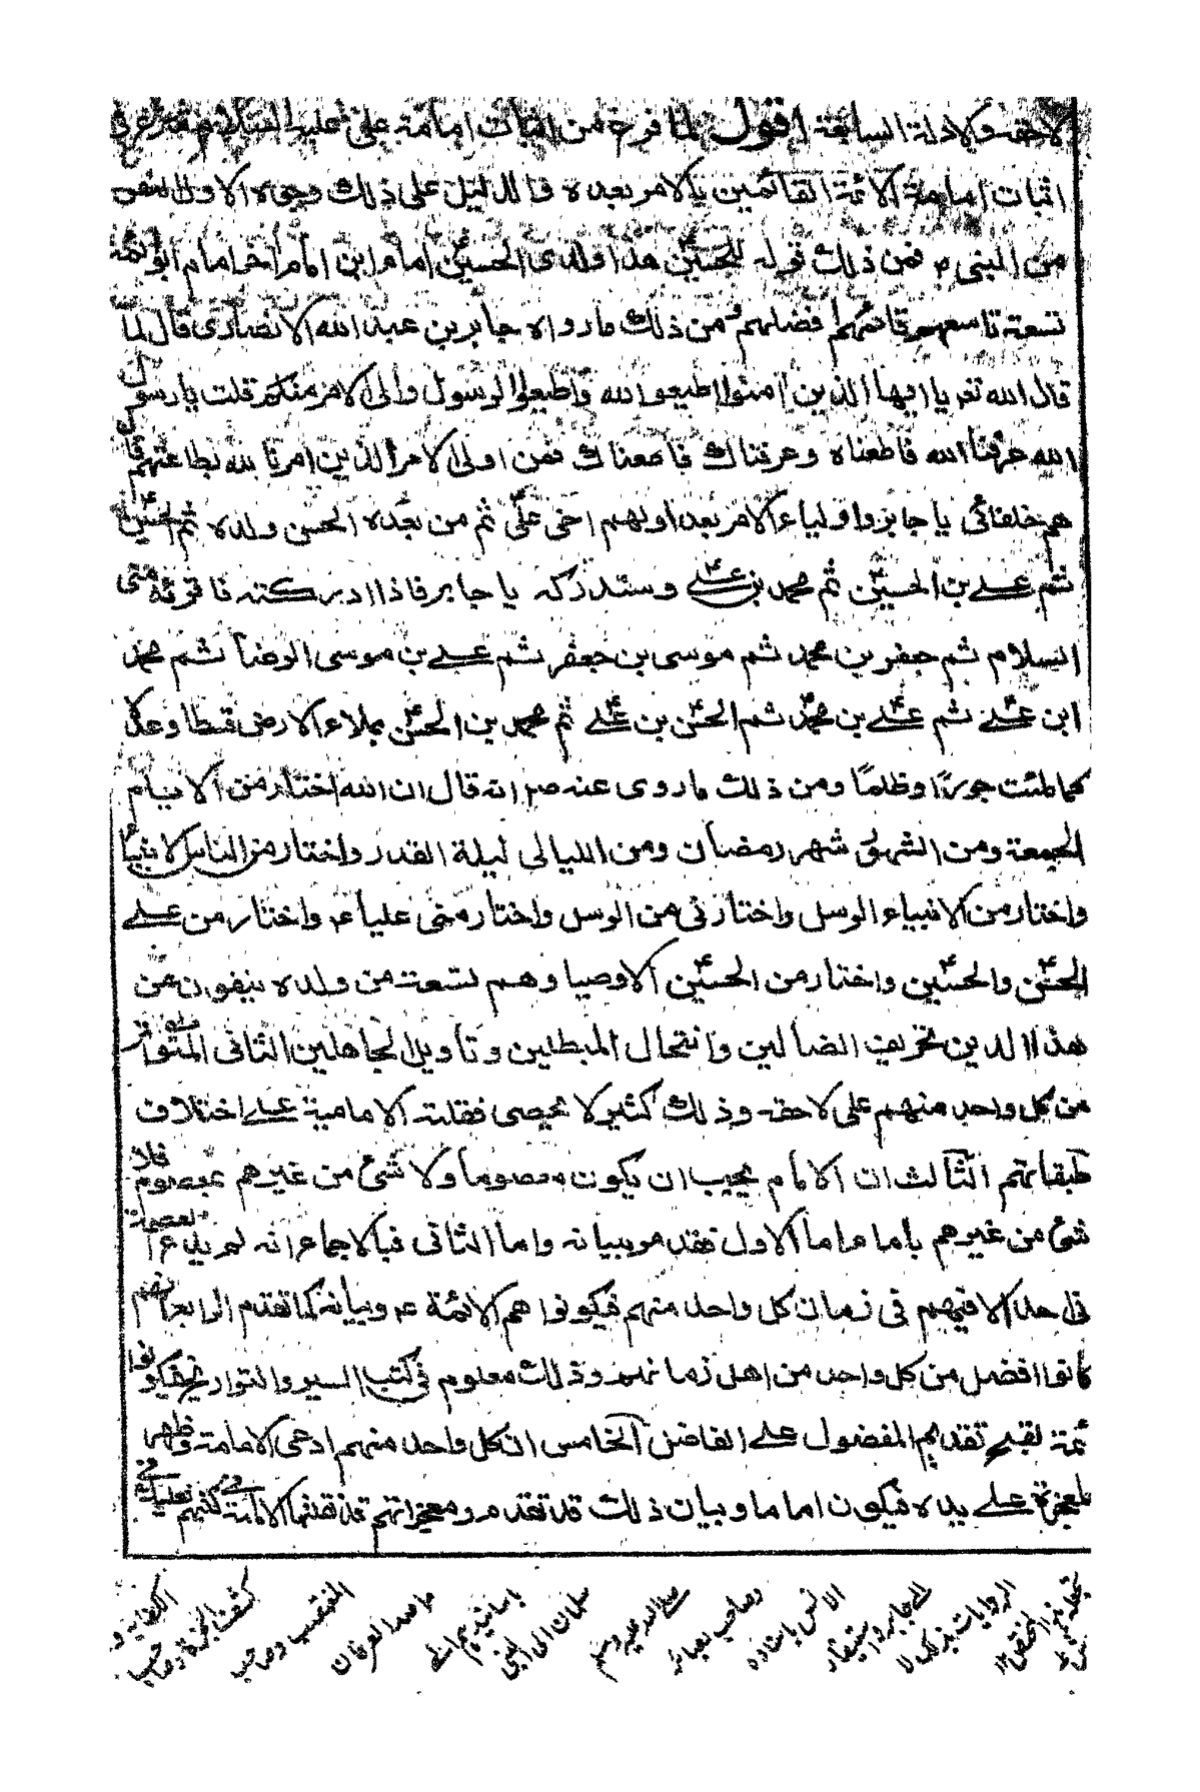 لاحقه والادلة السابقة اقول لما فرغ من اثبات امامة علي عليه السلام شرع في
اثبات امامة الائمة القائمين بالامر بعده والدليل على ذلك وجوه الاول النص
من النبي ص فمن ذلك قوله للحسين هذا ولدى الحسين امام ابن امام اخو امام ابو ائمة
تسعة تاسعهم قائمهم افضلهم ومن ذلك ما رواه جابر بن عبد الله الانصارى قال لما
قال الله تعم يا ايها الذين آمنوا اطيعوا الله واطيعوا الرسول واولى الامر منكم قلت يا رسول
الله عرفنا الله فاطعناه وعرفناك فاطعناك فمن اولى الامر الذين امرنا الله بطاعتهم قال
هم خلفائى يا جابر واولياء الامر بعدى اولهم اخى على ثم من بعده الحسن ولده ثم الحسين
ثم على بن الحسين ثم محمد بن على وستدركه يا جابر فاذا ادركته فاقرئه منى
السلام ثم جعفر بن محمد ثم موسى بن جعفر ثم على بن موسى الرضا ثم محمد
ابن على ثم على بن محمد ثم الحسن بن على ثم محمد بن الحسن يملاء الارض قسطا وعدلا
كما ملئت جورا وظلما ومن ذلك ما روى عنه ص انه قال ان الله اختار من الايام
الجمعة ومن الشهور شهر رمضان ومن الليالى ليلة القدر واختار من الناس الانبياء
واختار من الانبياء الرسل واختارنى من الرسل واختار منى عليا ع واختار من على
الحسن والحسين واختار من الحسين الاوصيا وهم تسعة من ولده ينفون عن
هذا الدين تحريف الضالين وانتحال المبطلين وتاويل الجاهلين الثانى النص المتواتر
من كل واحد منهم على لاحقه وذلك كثير لا يحصى نقلته الامامية على اختلاف
طبقاتهم الثالث ان الامام يجب ان يكون معصوما ولا شئ من غيرهم بمعصوم فلا
شئ من غيرهم بامام اما الاول فقد مر بيانه واما الثانى فبالاجماع انه لم يدع العصمة
فى احد الا فيهم فى زمان كل واحد منهم فيكونوا هم الائمة ع وبيانه كما تقدم الرابع انهم
كانوا افضل من كل واحد من اهل زمانهم وذلك معلوم فى كتب السير والتواريخ فيكونوا
ئمة لقبح تقديم المفضول على الفاضل الخامس ان كل واحد منهم ادعى الامامة وظهر
لمعجزة على يده فيكون اماما وبيان ذلك قد تقدم ومعجزاتهم قد نقلتها الامامية فى كتبهم فعليك فى